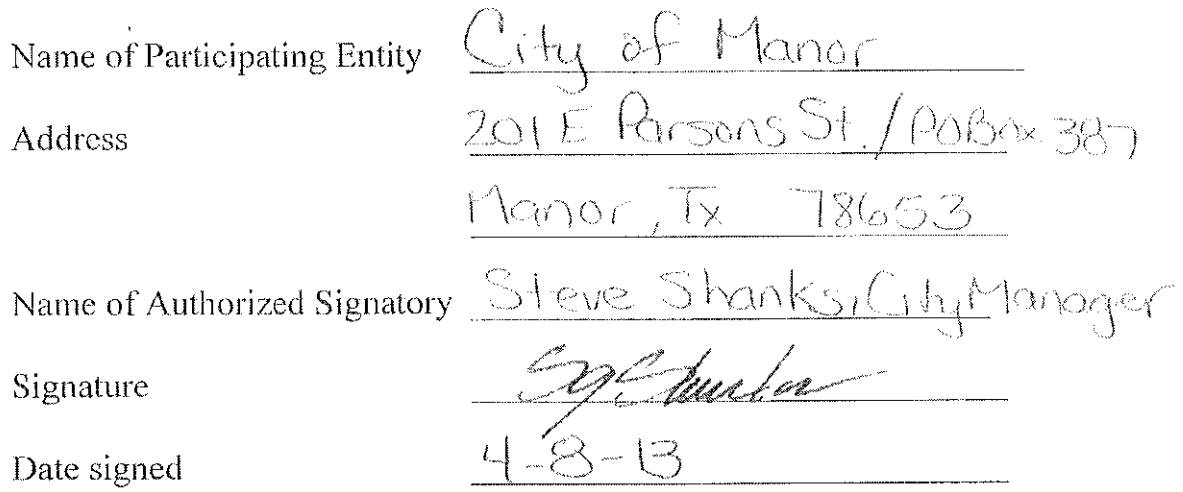 Name of Participating Entity City of Manor
Address 201 E Parsons St. / PO Box 387
Manor, Tx 78653
Name of Authorized Signatory Steve Shanks, City Manager
Signature
Date signed 4-8-13